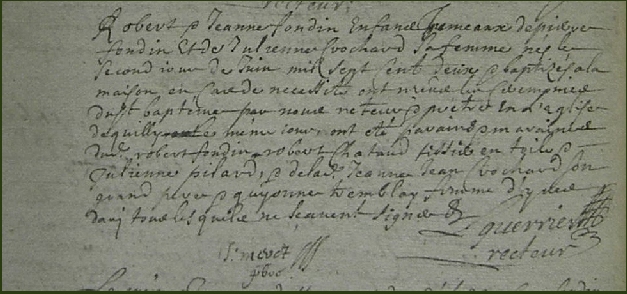 recteur
Robert & Jeanne fondin Enfance Jumeaux de pierre
fondin Et de Julienne Crochard sa femme nes le
second iour de Juin mil sept Cent deux & baptizés a la
maison en Cas de necessité ont receu les Ceremonies
du st baptéme par nous recteur & pretre En L'eglise
de quilly le meme iour, ont été parains & maraines
dud. robert fondin robert Chataud &
Julienne pilard, & de lad. Jeanne Jean Crochard son
grand pere & guyonne tremblay femme d'yves
danj tous lesquels ne scavent signer
guerrier
recteur